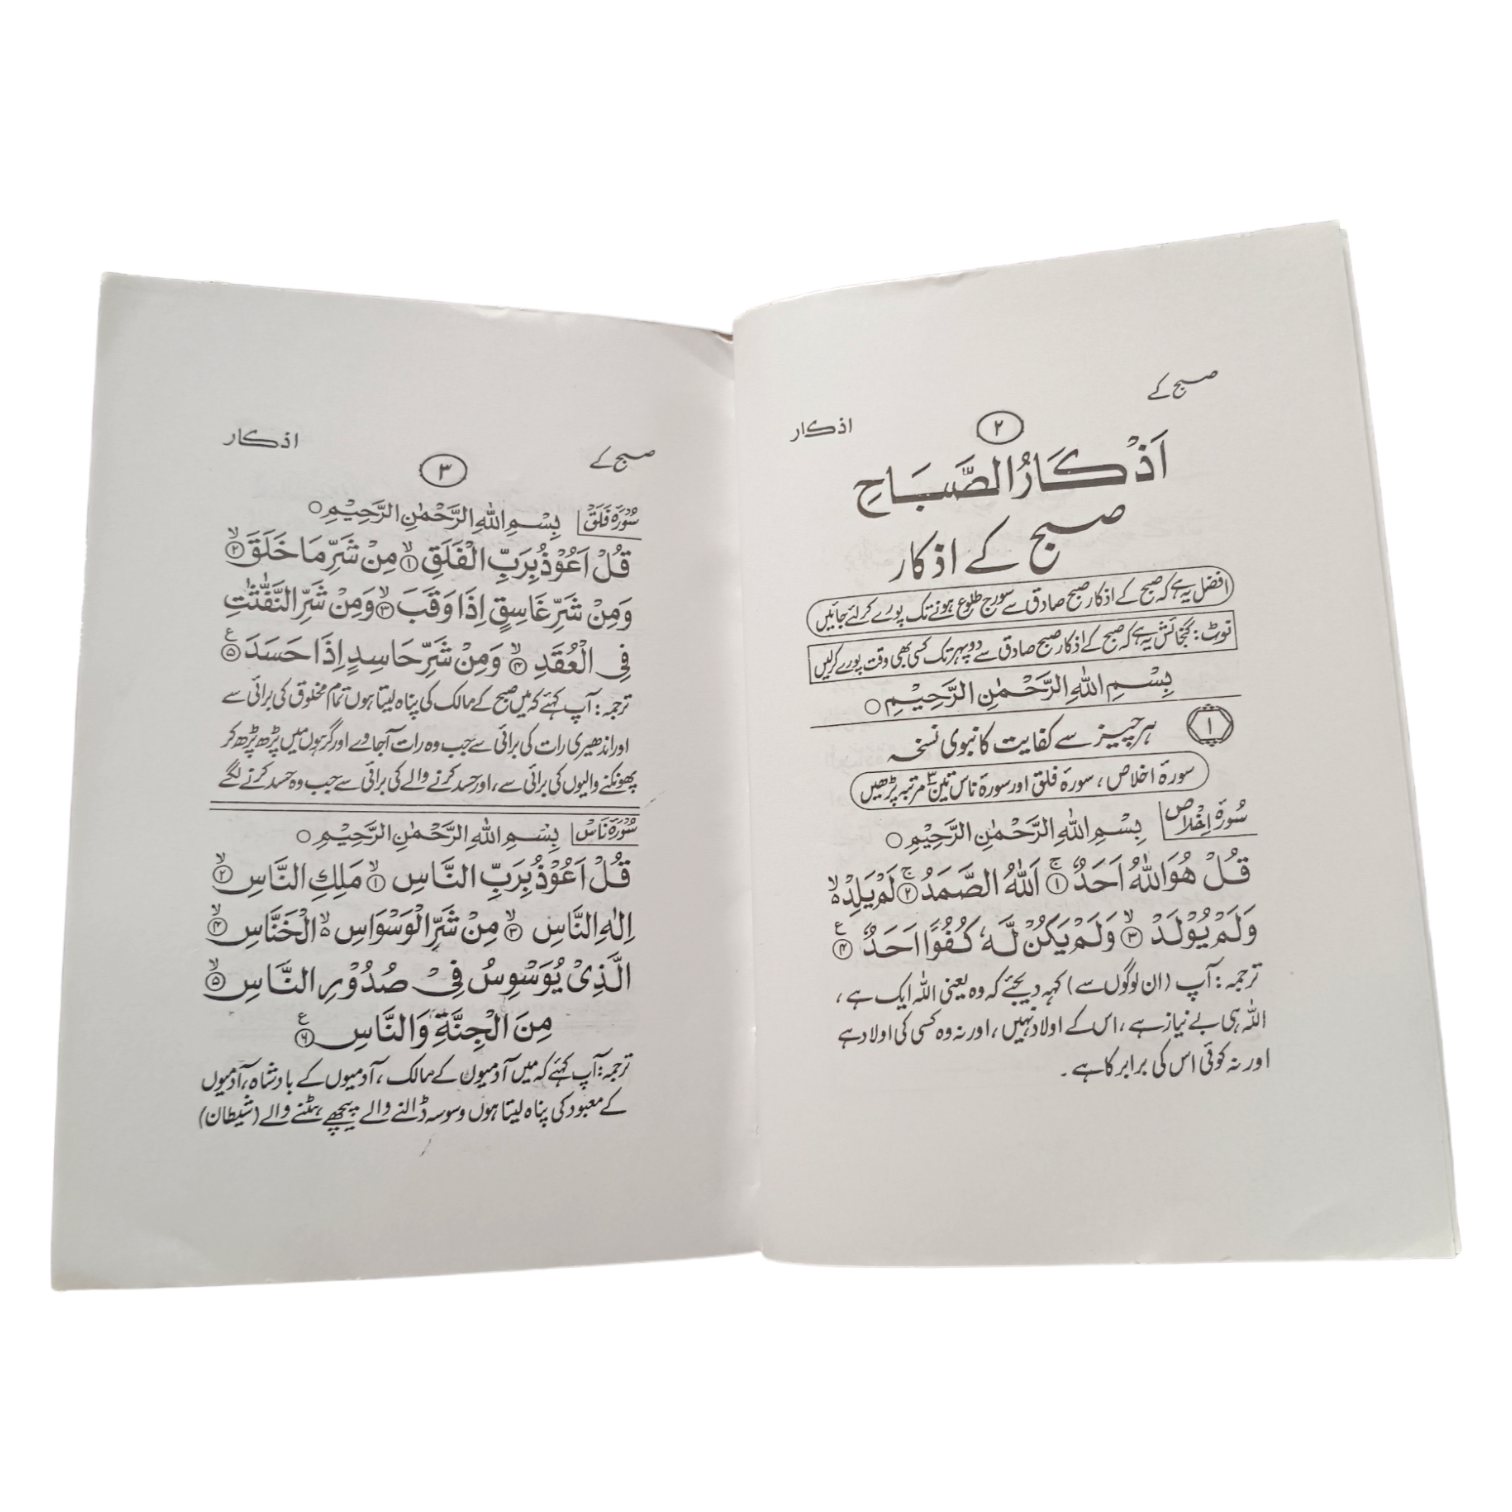 صبح کے
۲
اذکار
اَذْکَارُ الصَّبَاحِ
صبح کے اذکار
افضل یہ ہے کہ صبح کے اذکار صبح صادق سے سورج طلوع ہونے تک پورے کرلئے جائیں
نوٹ: گنجائش یہ ہے کہ صبح کے اذکار صبح صادق سے دوپہر تک کسی بھی وقت پورے کرلیں
بِسْمِ اللهِ الرَّحْمٰنِ الرَّحِيْمِ ○
۱
ہر چیز سے کفایت کا نبوی نسخہ
سورۃ اخلاص، سورۃ فلق اور سورۃ ناس تین۳ مرتبہ پڑھیں
سُورَۃ اِخْلَاص بِسْمِ اللهِ الرَّحْمٰنِ الرَّحِيْمِ ○
قُلْ هُوَ اللّٰهُ اَحَدٌ ۚ﴿۱﴾ اَللّٰهُ الصَّمَدُ ۚ﴿۲﴾ لَمْ يَلِدْ ۙ
وَلَمْ يُوْلَدْ ۙ﴿۳﴾ وَلَمْ يَكُنْ لَّهٗ كُفُوًا اَحَدٌ ﴿۴﴾ ع
ترجمہ: آپ (ان لوگوں سے) کہہ دیجئے کہ وہ یعنی اللہ ایک ہے،
اللہ ہی بے نیاز ہے، اس کے اولاد نہیں، اور نہ وہ کسی کی اولاد ہے
اور نہ کوئی اس کی برابر کا ہے۔
صبح کے
۳
اذکار
سُورَۃ فَلَقْ بِسْمِ اللهِ الرَّحْمٰنِ الرَّحِيْمِ ○
قُلْ اَعُوْذُ بِرَبِّ الْفَلَقِ ۙ﴿۱﴾ مِنْ شَرِّ مَا خَلَقَ ۙ﴿۲﴾
وَمِنْ شَرِّ غَاسِقٍ اِذَا وَقَبَ ۙ﴿۳﴾ وَمِنْ شَرِّ النَّفّٰثٰتِ
فِي الْعُقَدِ ۙ﴿۴﴾ وَمِنْ شَرِّ حَاسِدٍ اِذَا حَسَدَ ﴿۵﴾ ع
ترجمہ: آپ کہئے کہ میں صبح کے مالک کی پناہ لیتا ہوں تمام مخلوق کی برائی سے
اور اندھیری رات کی برائی سے جب وہ رات آجاوے اور گرہوں میں پڑھ پڑھ کر
پھونکنے والیوں کی برائی سے، اور حسد کرنے والے کی برائی سے جب وہ حسد کرنے لگے
سُورَۃ نَاسْ بِسْمِ اللهِ الرَّحْمٰنِ الرَّحِيْمِ ○
قُلْ اَعُوْذُ بِرَبِّ النَّاسِ ۙ﴿۱﴾ مَلِكِ النَّاسِ ۙ﴿۲﴾
اِلٰهِ النَّاسِ ۙ﴿۳﴾ مِنْ شَرِّ الْوَسْوَاسِ ۙ الْخَنَّاسِ ۙ﴿۴﴾
الَّذِيْ يُوَسْوِسُ فِيْ صُدُوْرِ النَّاسِ ۙ﴿۵﴾
مِنَ الْجِنَّةِ وَالنَّاسِ ﴿۶﴾ ع
ترجمہ: آپ کہئے کہ میں آدمیوں کے مالک، آدمیوں کے بادشاہ، آدمیوں
کے معبود کی پناہ لیتا ہوں وسوسہ ڈالنے والے پیچھے ہٹنے والے (شیطان)